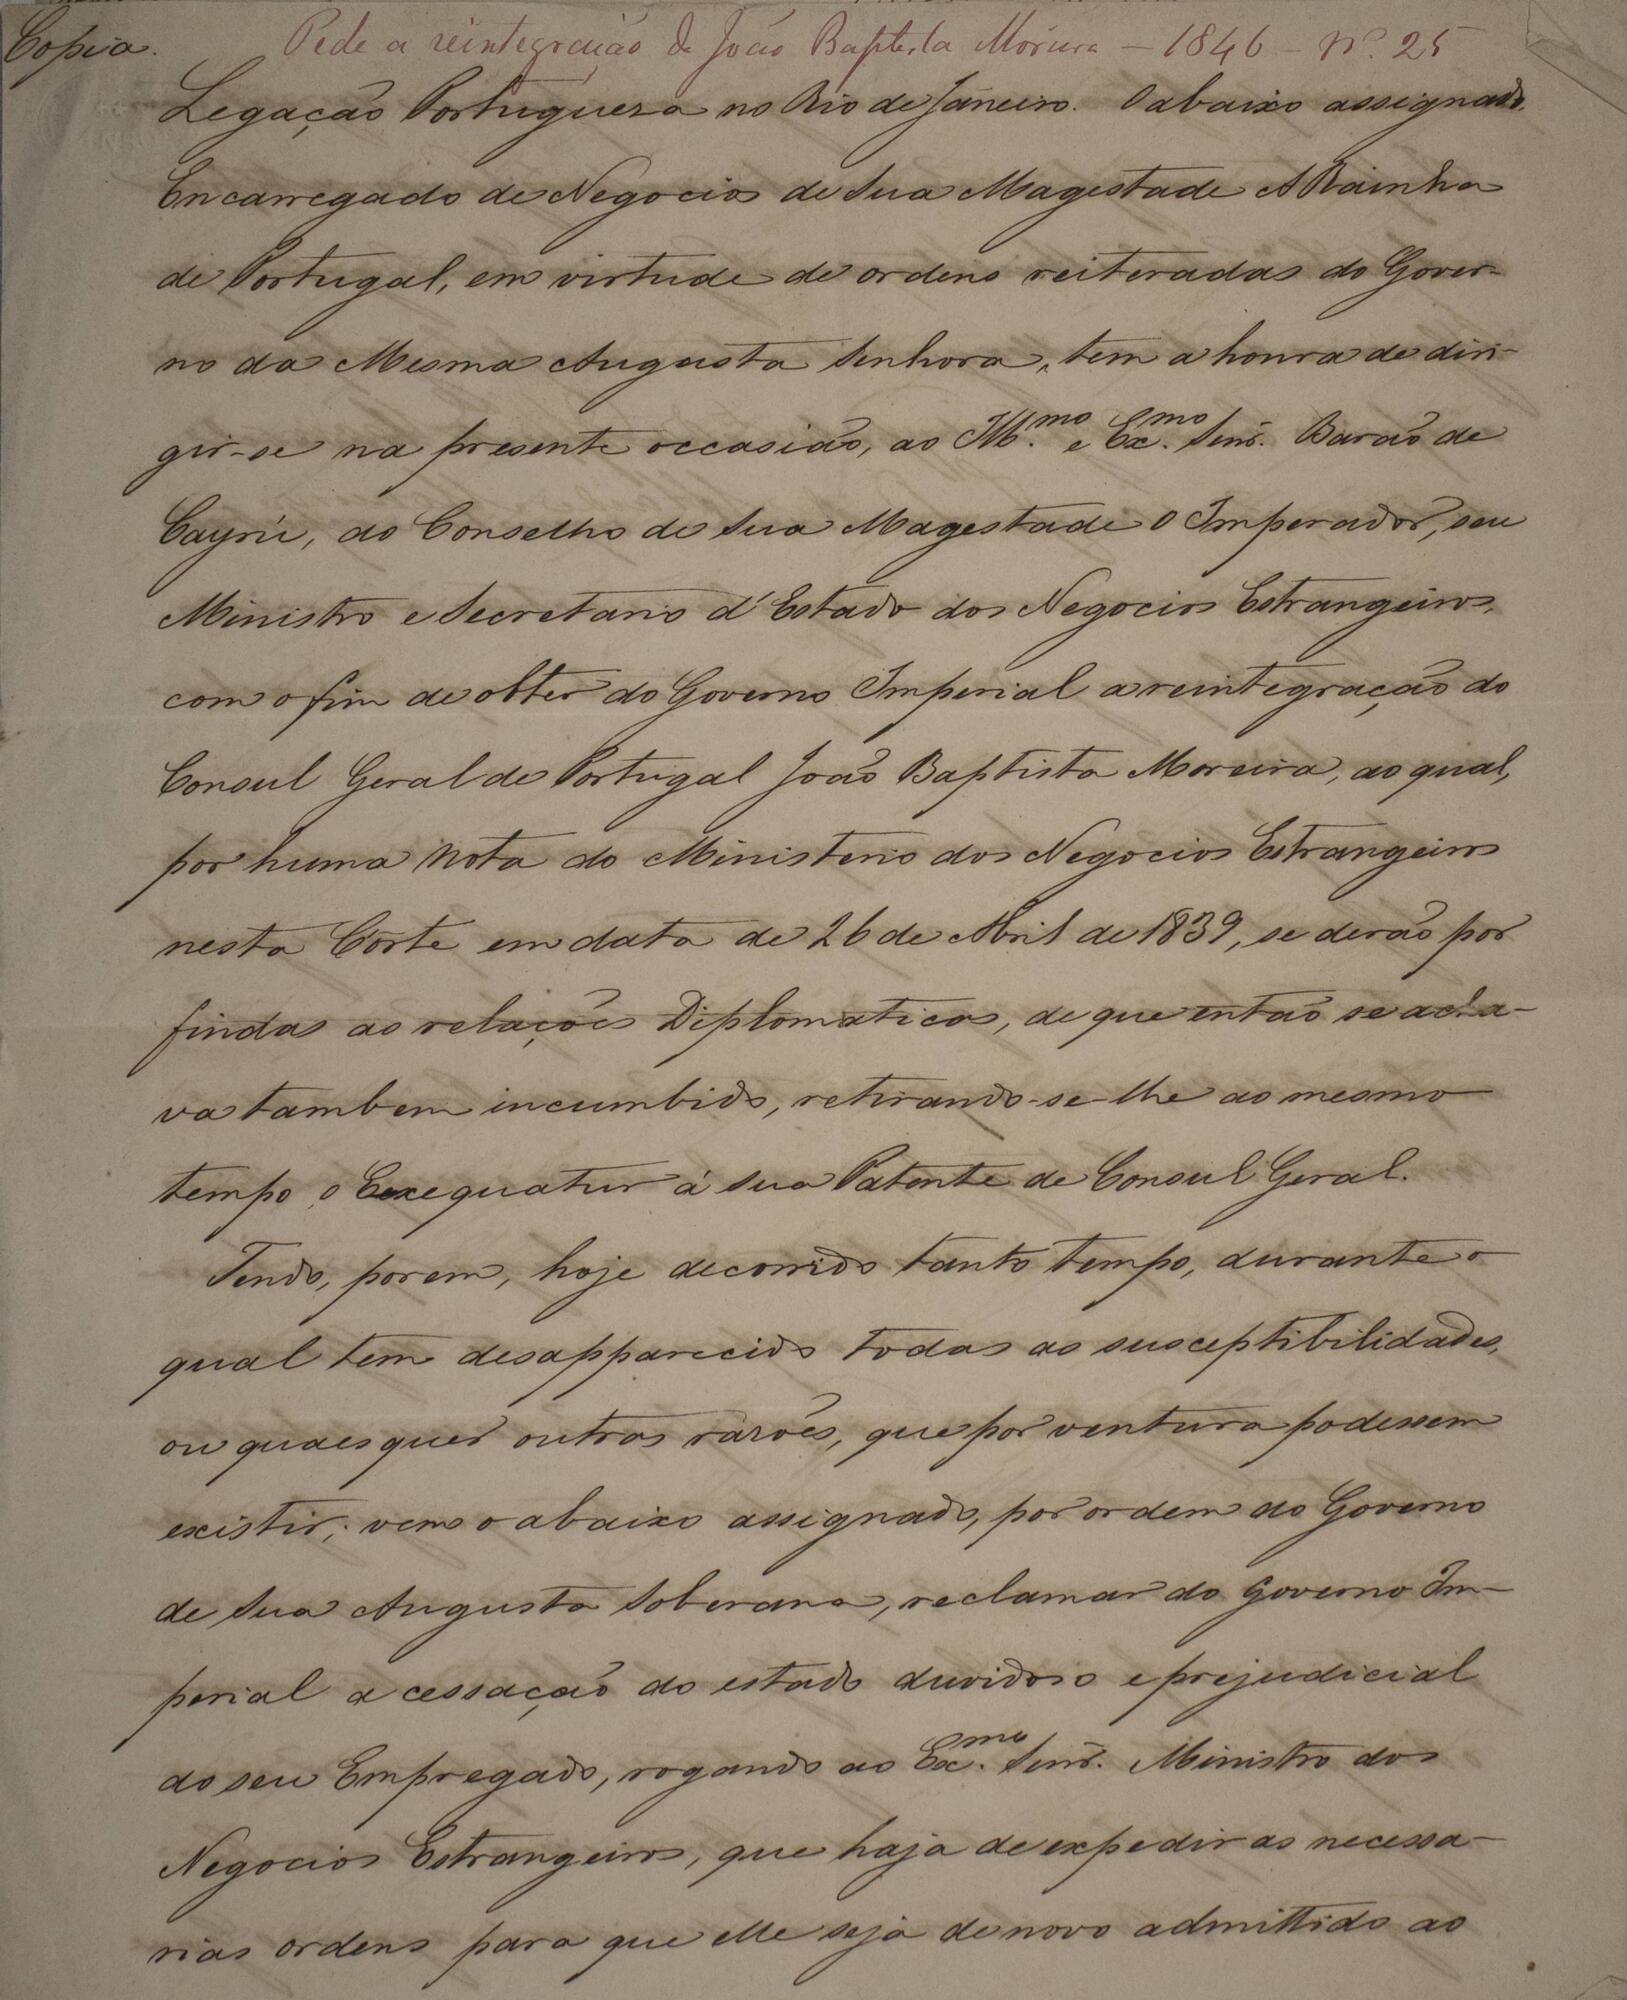 Copia.
Pede a reintegração de João Baptista Moreira — 1846 — Nº 25
Legação Portugueza no Rio de Janeiro. O abaixo assignado,
Encarregado de Negocios de Sua Magestade A Rainha
de Portugal, em virtude de ordens reiteradas do Gover-
no da Mesma Augusta Senhora, tem a honra de diri-
gir-se na presente occasião, ao Ill.mo e Ex.mo Senr. Barão de
Cayrú, do Conselho de Sua Magestade O Imperador, seu
Ministro e Secretario d'Estado dos Negocios Estrangeiros,
com o fim de obter do Governo Imperial a reintegração do
Consul Geral de Portugal João Baptista Moreira, ao qual,
por huma Nota do Ministerio dos Negocios Estrangeiros
nesta Côrte em data de 26 de Abril de 1839, se derão por
findas as relações Diplomaticas, de que então se acha-
va tambem incumbido, retirando-se-lhe ao mesmo
tempo o Exequatur á sua Patente de Consul Geral.
Tendo, porem, hoje decorrido tanto tempo, durante o
qual tem desapparecido todas as susceptibilidades,
ou quaesquer outras razões, que por ventura podessem
existir; vem o abaixo assignado, por ordem do Governo
de Sua Augusta Soberana, reclamar do Governo Im-
perial a cessação do estado duvidoso e prejudicial
do seu Empregado, rogando ao Ex.mo Senr. Ministro dos
Negocios Estrangeiros, que haja de expedir as necessa-
rias ordens para que elle seja de novo admittido ao